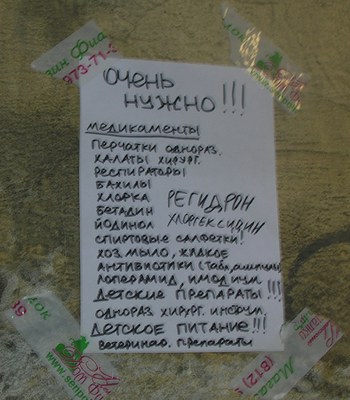 ОЧЕНЬ
НУЖНО!!!
МЕДИКАМЕНТЫ
ПЕРЧАТКИ ОДНОРАЗ.
ХАЛАТЫ ХИРУРГ.
РЕСПИРАТОРЫ
БАХИЛЫ
ХЛОРКА
БЕТАДИН
ЙОДИНОЛ
РЕГИДРОН
ХЛОРГЕКСИДИН
СПИРТОВЫЕ САЛФЕТКИ!
ХОЗ.МЫЛО, ЖИДКОЕ
АНТИБИОТИКИ (табл,
ЛОПЕРАМИД, ИМОДИУМ
ДЕТСКИЕ ПРЕПАРАТЫ!!!
ОДНОРАЗ. ХИРУРГ. ИНСТРУМ.
ДЕТСКОЕ ПИТАНИЕ!!!
ВЕТЕРИНАР. ПРЕПАРАТЫ
973-71-3
(812)
Мага